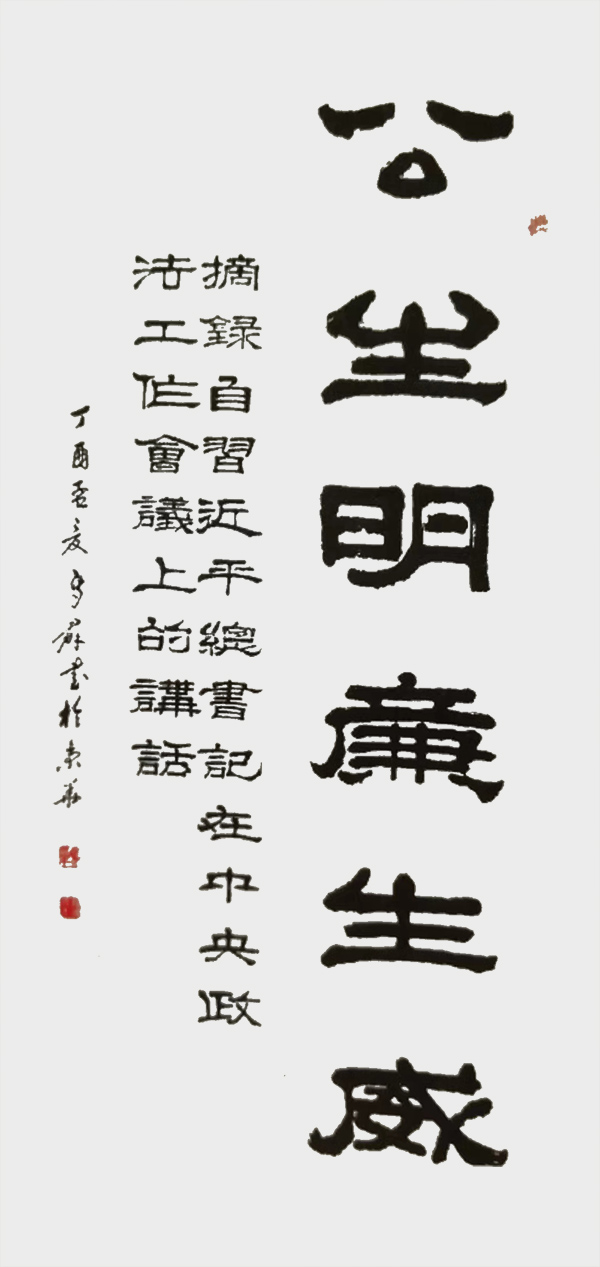 公生明廉生威
摘錄自習近平總書記在中央政
法工作會議上的講話
丁酉孟夏 書於京華